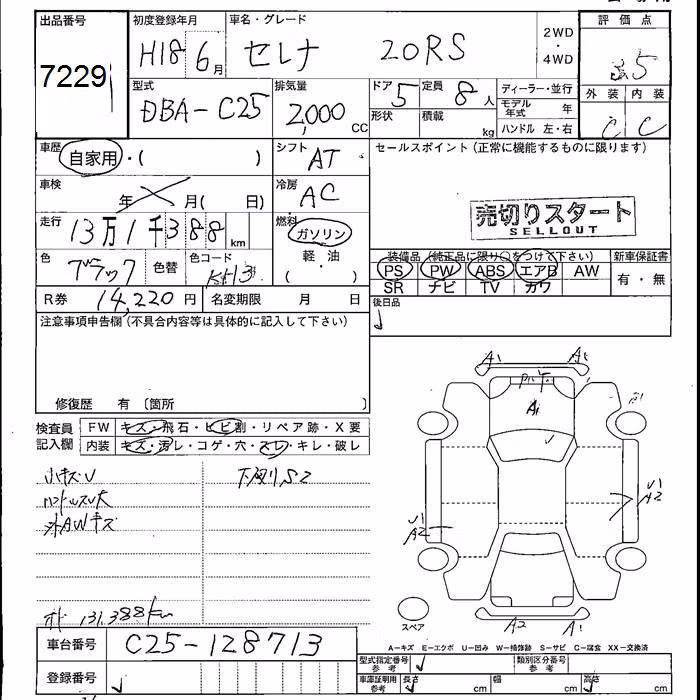 出品番号 初度登録年月 車名・グレード 評価点
7229 H18 6月 セレナ 20RS 2WD・4WD 3.5
型式 排気量 ドア 定員 ディーラー・並行 外装 内装
DBA-C25 2,000 CC 5 8人 モデル年式 年 C C
形状 積載 kg ハンドル 左・右
車歴 シフト セールスポイント(正常に機能するものに限ります)
自家用・( ) AT
車検 年 月( 日) 冷房 AC
売切りスタート
SELLOUT
走行 13万1千388 km 燃料 ガソリン
軽・油
( )
装備品(純正品に限り○をつけて下さい) 新車保証書
色 ブラック 色替 色コード KH3
PS PW ABS エアB AW 有・無
SR ナビ TV カワ
R券 14,220円 名変期限 月 日 後日品
注意事項申告欄(不具合内容等は具体的に記入して下さい)
修復歴 有〔箇所
検査員 FW キズ・飛石・ヒビ割・リペア跡・X要
記入欄 内装 キズ・汚レ・コゲ・穴・スレ・キレ・破レ
小キズU 下廻りS2
ハンドルスレ大
外AWキズ
オド 131,388km
車台番号 C25-128713
登録番号
A1 A1
A1
U1 A2
U1 A2
A2 A1
スペア
A−キズ E−エクボ U−凹み W−補修跡 S−サビ C−腐食 XX−交換済
型式指定番号 参考 類別区分番号 参考
車庫証明用 参考 長さ cm 幅 cm 高さ cm